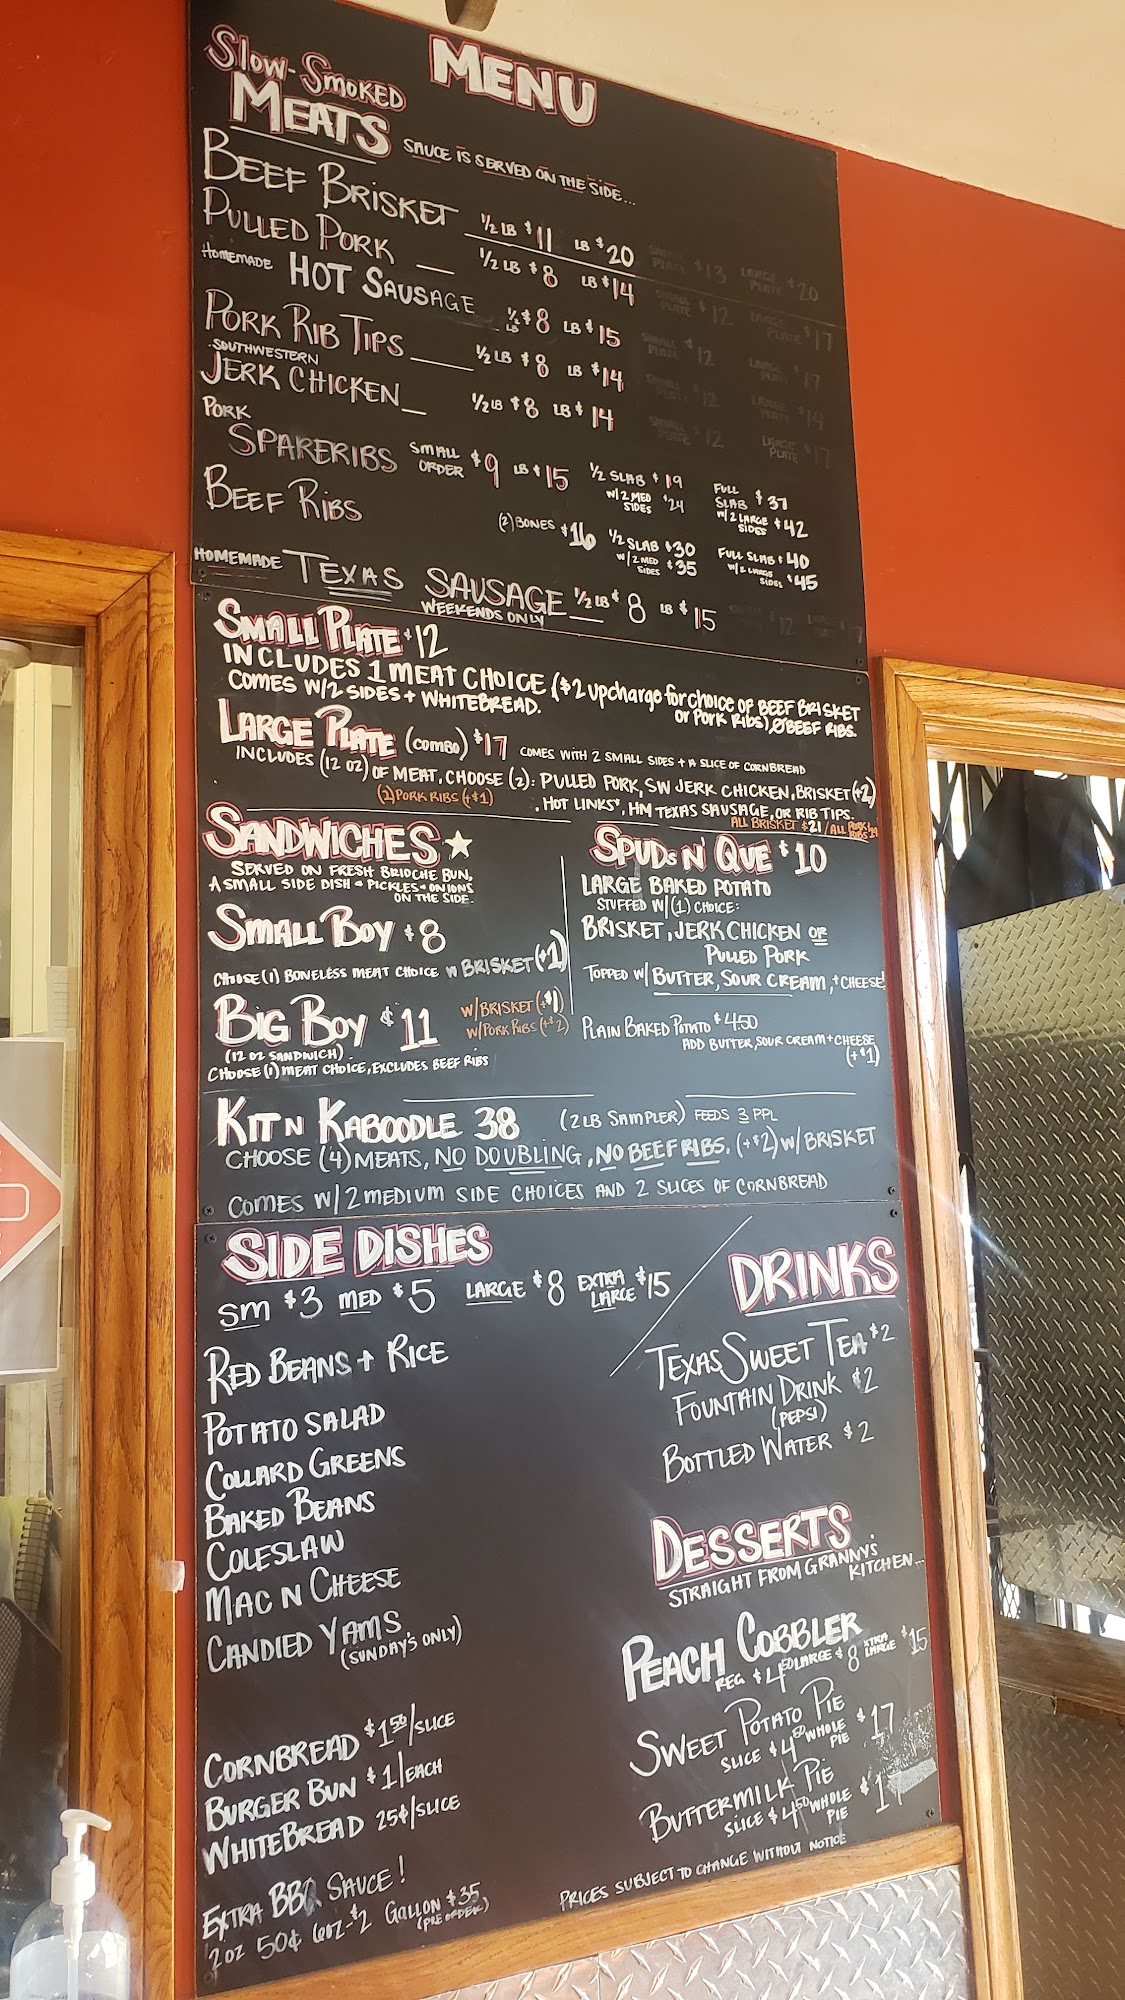 MENU
SLOW-SMOKED
MEATS
SAUCE IS SERVED ON THE SIDE...
BEEF BRISKET 1/2 LB $11 LB $20 SMALL PLATE $13 LARGE PLATE $20
PULLED PORK 1/2 LB $8 LB $14 SMALL PLATE $12 LARGE PLATE $17
HOMEMADE HOT SAUSAGE 1/2 LB $8 LB $15 SMALL PLATE $12 LARGE PLATE $17
PORK RIB TIPS 1/2 LB $8 LB $14 SMALL PLATE $12 LARGE PLATE $14
SOUTHWESTERN
JERK CHICKEN 1/2 LB $8 LB $14 SMALL PLATE $12 LARGE PLATE $17
PORK
SPARERIBS SMALL ORDER $9 LB $15 1/2 SLAB $19 FULL SLAB $37
W/2 MED SIDES $24 W/2 LARGE SIDES $42
BEEF RIBS (2) BONES $16 1/2 SLAB $30 FULL SLAB $40
W/2 MED SIDES $35 W/2 LARGE SIDES $45
HOMEMADE TEXAS SAUSAGE 1/2 LB $8 LB $15 $12
WEEKENDS ONLY
SMALL PLATE $12
INCLUDES 1 MEAT CHOICE ($2 upcharge for choice of BEEF BRISKET
or Pork Ribs) Ø BEEF RIBS.
COMES W/2 SIDES + WHITEBREAD.
LARGE PLATE (COMBO) $17 COMES WITH 2 SMALL SIDES + A SLICE OF CORNBREAD
INCLUDES (12 OZ) OF MEAT, CHOOSE (2): PULLED PORK, SW JERK CHICKEN, BRISKET (+2)
(2) PORK RIBS (+$1) , HOT LINKS", HM TEXAS SAUSAGE, OR RIB TIPS.
ALL BRISKET $21 / ALL PORK RIBS $19
SANDWICHES ★
SERVED ON FRESH BRIOCHE BUN,
A SMALL SIDE DISH + PICKLES + ONIONS
ON THE SIDE.
SMALL BOY $8
CHOOSE (1) BONELESS MEAT CHOICE BRISKET (+1)
BIG BOY $11
(12 OZ SANDWICH)
W/BRISKET (+$1)
W/PORK RIBS (+$2)
CHOOSE (1) MEAT CHOICE, EXCLUDES BEEF RIBS
SPUDS N' QUE $10
LARGE BAKED POTATO
STUFFED W/(1) CHOICE:
BRISKET, JERK CHICKEN OR
PULLED PORK
TOPPED W/ BUTTER, SOUR CREAM, + CHEESE!
PLAIN BAKED POTATO $4.50
ADD BUTTER, SOUR CREAM + CHEESE
(+$1)
KIT N KABOODLE 38 (2 LB SAMPLER) FEEDS 3 PPL
CHOOSE (4) MEATS, NO DOUBLING, NO BEEF RIBS. (+$2) W/ BRISKET
COMES W/ 2 MEDIUM SIDE CHOICES AND 2 SLICES OF CORNBREAD
SIDE DISHES
SM $3 MED $5 LARGE $8 EXTRA LARGE $15
RED BEANS + RICE
POTATO SALAD
COLLARD GREENS
BAKED BEANS
COLESLAW
MAC N CHEESE
CANDIED YAMS
(SUNDAY'S ONLY)
CORNBREAD $1.50/SLICE
BURGER BUN $1/EACH
WHITEBREAD 25¢/SLICE
EXTRA BBQ SAUCE!
2 OZ 50¢ 6OZ-$2 GALLON $35
(PRE ORDER)
DRINKS
TEXAS SWEET TEA $2
FOUNTAIN DRINK $2
(PEPSI)
BOTTLED WATER $2
DESSERTS
STRAIGHT FROM GRANNY'S
KITCHEN...
PEACH COBBLER
REG $4.50 LARGE $8 XTRA LARGE $15
SWEET POTATO PIE
SLICE $4.50 WHOLE PIE $17
BUTTERMILK PIE
SLICE $4.50 WHOLE PIE
PRICES SUBJECT TO CHANGE WITHOUT NOTICE